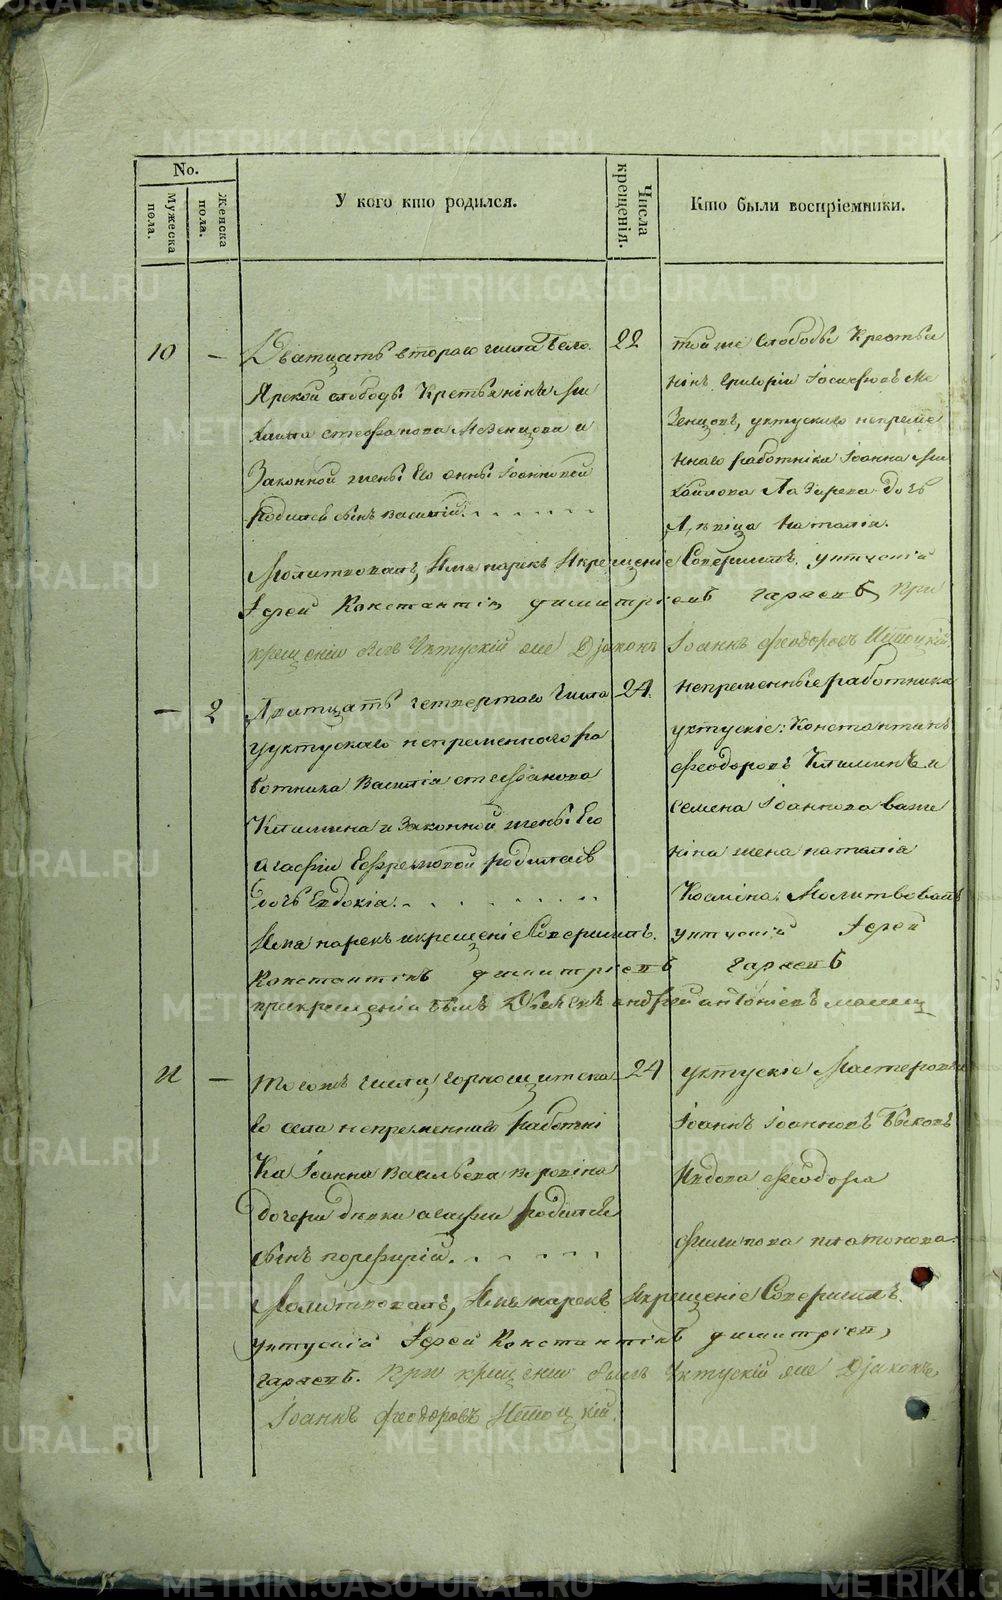 No.
Мужеска пола.
Женска пола.
У кого кто родился.
Числа крещенія.
Кто были воспріемники.
10 — Дватцать втораго числа Бело
Ярской слободы Крестьянина Ми
хаила стефанова Мезенцова и
Законной жены Его анны Iоанновой
родился сынъ василий.
22
той же слободы Крестья
нинъ григорiй Iосифовъ Ме
зенцовъ, уктускаго непреме
ннаго работника Iоанна Ми
хайлова Лазарева дочь
девица наталiя.
Молитвовалъ, Имя нарекъ Икрещенiе Совершилъ уктускiй
Iерей Константинъ димитрiевъ гаряевъ при
крещенiи былъ Уктускiй же Дiаконъ Iоаннъ феодоровъ
— 2 Дватцать четвертого числа
уктускаго непременного ра
ботника Василiя стефанова
Климина и Законной жены Его
агафiи Ефремовой родилась
дочь Евдокiя.
24.
непременные работники
уктускiе: Константинъ
феодоровъ Климинъ и
семена Iоаннова
жена наталiя
Космина. Молитвовалъ
Имя нарекъ икрещенiе Совершилъ. уктускiй Iерей
Константинъ димитрiевъ гаряевъ
прикрещенiи былъ Дьячекъ андрей антонiевъ
11 — Тогожъ числа, горнощитска
го села непременнаго работни
ка Iоанна Васильева
дочери девки агафiи родился
сынъ порфирiй.
24
уктускiе Мастеровой
Iоаннъ Iоанновъ Быковъ
Ивдова феодора
филипова платонова.
Молитвовалъ, Имя нарекъ Икрещенiе Совершилъ.
уктускiй Iерей Константинъ димитрiев,
гаряевъ. При крещенiи былъ Уктускiй же Дiаконъ
Iоаннъ феодоровъ
METRIKI.GASO-URAL.RU